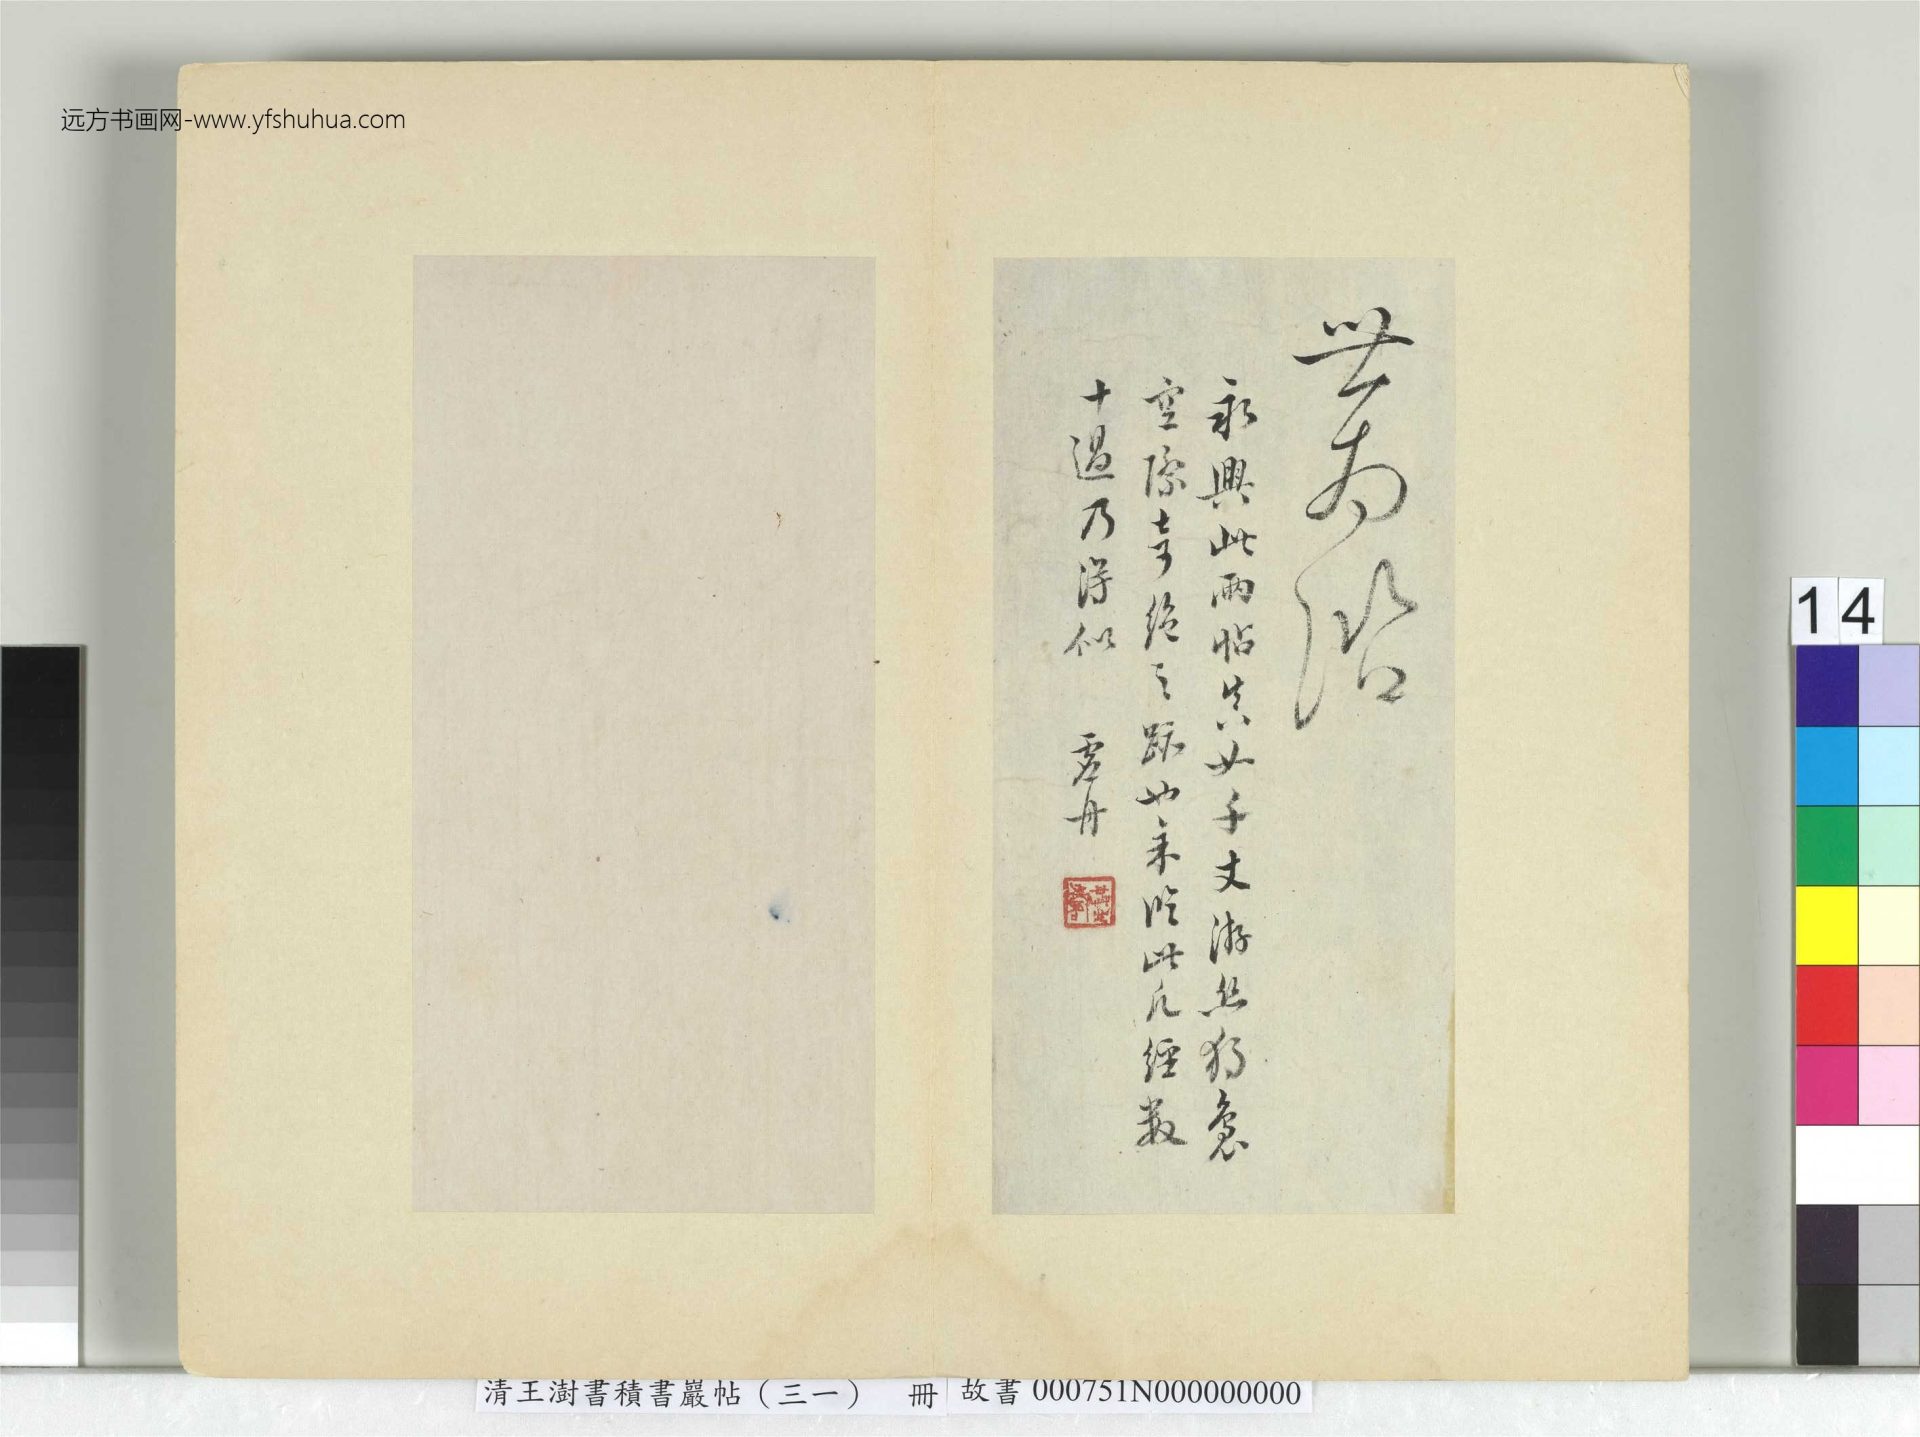 远方书画网-www.yfshuhua.com
世南
永興此兩帖真如千丈游絲獨裊
空際奇絕之跡也余臨此凡經數
十過乃得似 虛舟
14
清王澍書積書巖帖（三一） 冊 故書 000751N000000000